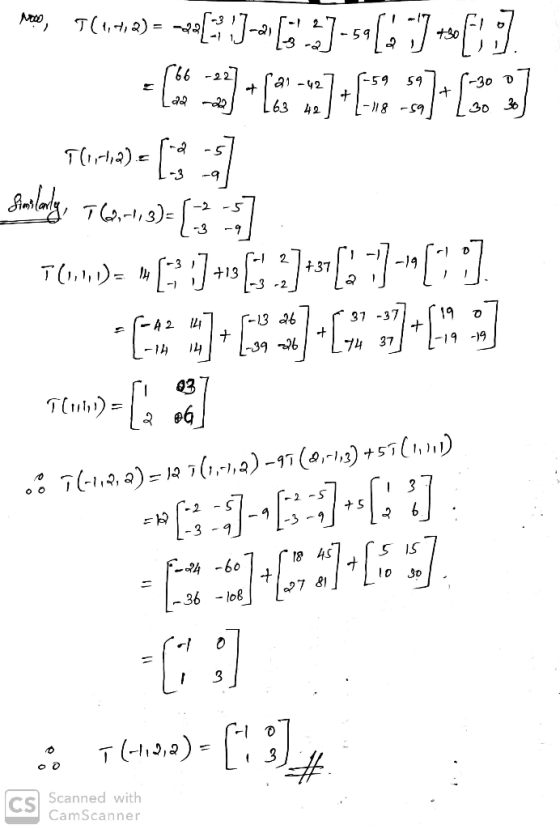 Now, T(1,-1,2) = -22[-3 1; -1 1] -21[-1 2; -3 -2] -59[1 -1; 2 1] +30[-1 0; 1 1].
= [66 -22; 22 -22] + [21 -42; 63 42] + [-59 59; -118 -59] + [-30 0; 30 30]
T(1,-1,2) = [-2 -5; -3 -9]
Similarly, T(2,-1,3) = [-2 -5; -3 -9]
T(1,1,1) = 14[-3 1; -1 1] +13[-1 2; -3 -2] +37[1 -1; 2 1] -19[-1 0; 1 1].
= [-42 14; -14 14] + [-13 26; -39 -26] + [37 -37; 74 37] + [19 0; -19 -19]
T(1,1,1) = [1 03; 2 06]
∴ T(-1,2,2) = 12 T(1,-1,2) -9T(2,-1,3) +5T(1,1,1)
= 12[-2 -5; -3 -9] -9[-2 -5; -3 -9] +5[1 3; 2 6].
= [-24 -60; -36 -108] + [18 45; 27 81] + [5 15; 10 30].
= [-1 0; 1 3]
∴ T(-1,2,2) = [-1 0; 1 3] #
CS Scanned with
CamScanner